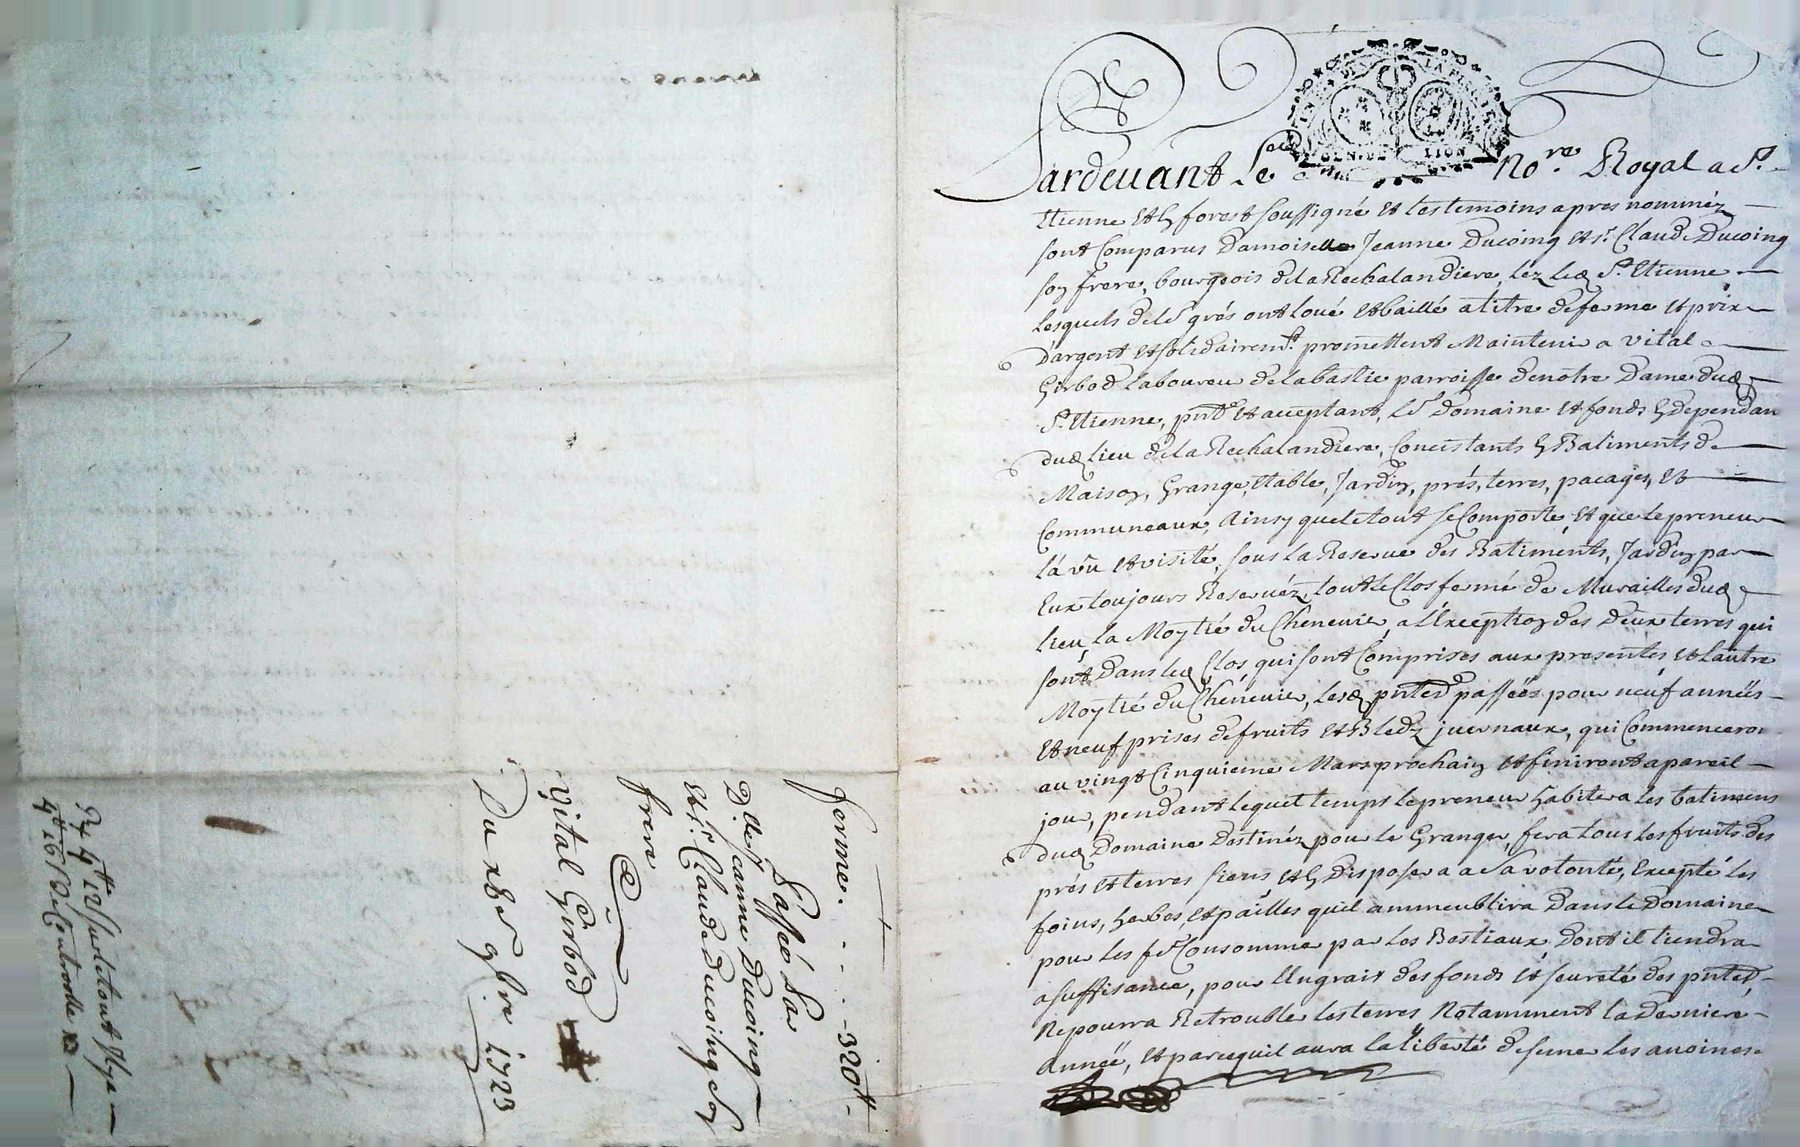 Pardevant Le No.re Royal a St.
Etienne et en forest soussigné et les temoins apres nomméz
sont Comparus Damoiselle Jeanne Ducoing et Sr. Claude Ducoing
son frere, bourgeois de la Rechalandiere, lez led. St. Etienne
Lesquels de leur grés ont loué et baillé a titre de ferme et prix
d'argent et solidairemt. promettent Maintenir a vital
Girbod Laboureur de la bastie parroisse de notre Dame dud.
St. Etienne, pnt. et acceptant, Le Domaine et fonds en dependan
dud. lieu de la Rechalandiere, Concistants en Batiments de
Maison, Grange, Etable, Jardin, prés, terres, pacages, et
Communeaux, Ainsy que le tout se Comporte, et que le preneur
là vû et visité, sous la Reserve des Batiments, Jardin par
Eux toujours Reservéz, tout le Clos fermé de Murailles dud.
lieu, La Moytié du Chenevier, a l'Exception des Deux terres qui
sont Dans led. Clos qui sont Comprises aux presentes et l'autre
Moytié du Chenevier, Lesd. pntes. passées pour neuf années
et neuf prises de fruits et Bledz juernaux, qui Commenceron
au vingt Cinquieme Mars prochain et finiront a pareil
jour, pendant lequel temps le preneur habitera les batimens
dud. Domaine Destinéz pour le Granger, fera tous les fruits des
prés et terres siens et en Disposera a sa volonté, Excepté les
foins, herbes, et pailles quil ammeublira Dans le Domaine
pour les fe. Consommer par les Bestiaux, Dont il tiendra
a suffisance, pour l'Engrais des fonds et seureté des pntes,
Ne pourra Retroubler les terres Notamment la Derniere
Année, et parcequil aura la liberté de semer les avoines
ferme. - - - - 320 tt.
Passée Par
D.lle Jeanne Ducoing
et Sr. Claude Ducoing son
frere
A
Vital Girbod
Du xbre 1723